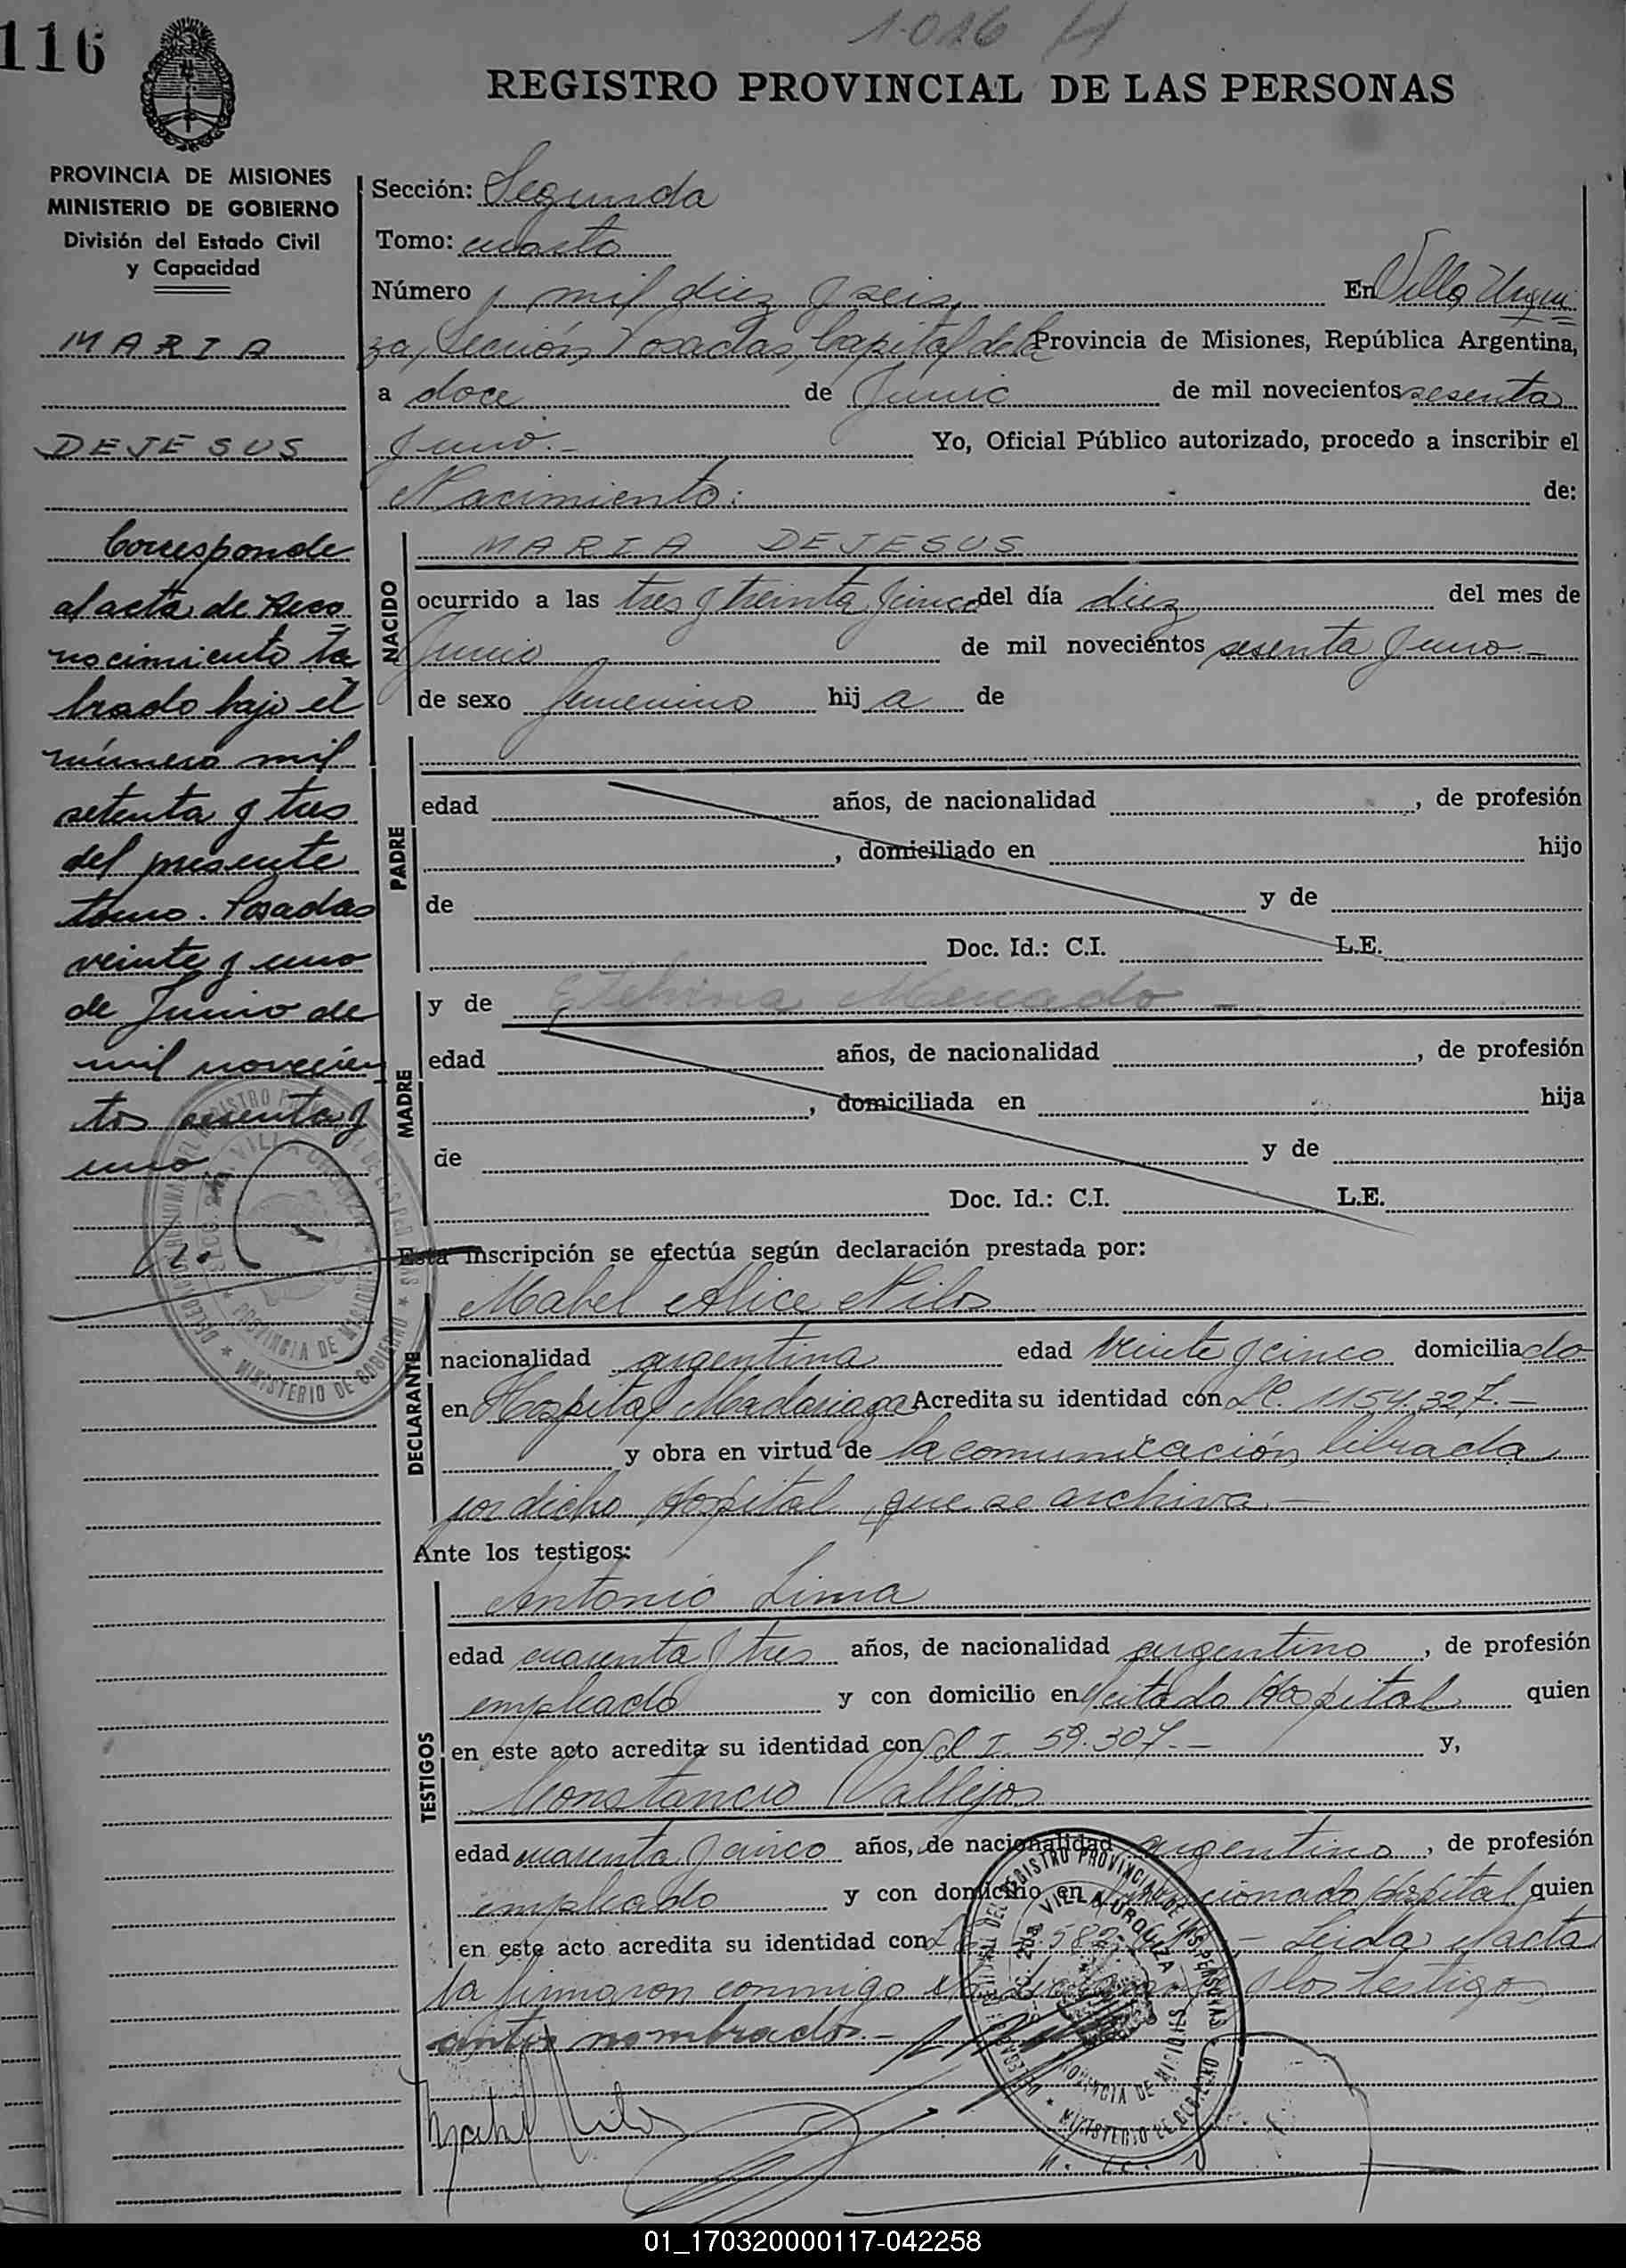 116
1.016
REGISTRO PROVINCIAL DE LAS PERSONAS
PROVINCIA DE MISIONES
MINISTERIO DE GOBIERNO
División del Estado Civil
y Capacidad
MARIA
DEJESUS
Corresponde
al acta de Reco
nocimiento la
brado bajo el
número mil
setenta y tres
del presente
tomo. Posadas
veinte y uno
de Junio de
mil novecien
tos sesenta y
uno.
Sección: Segunda
Tomo: cuarto
Número mil diez y seis En Villa Urqui
za, Sección, Posadas, Capital de la Provincia de Misiones, República Argentina,
a doce de Junio de mil novecientos sesenta
y uno.- Yo, Oficial Público autorizado, procedo a inscribir el
Nacimiento: de:
NACIDO
MARIA DEJESUS
ocurrido a las tres y treinta y cinco del día diez del mes de
Junio de mil novecientos sesenta y uno -
de sexo femenino hij a de
PADRE
edad años, de nacionalidad , de profesión
, domiciliado en hijo
de y de
Doc. Id.: C.I. L.E.
MADRE
y de Etelvina Mercado -
edad años, de nacionalidad , de profesión
, domiciliada en hija
de y de
Doc. Id.: C.I. L.E.
Esta inscripción se efectúa según declaración prestada por:
DECLARANTE
Mabel Alice Nilos
nacionalidad argentina edad veinte y cinco domiciliada
en Hospital Madariaga Acredita su identidad con L.C. 1154.327.-
y obra en virtud de la comunicación librada
por dicho Hospital, que se archiva.-
Ante los testigos:
TESTIGOS
Antonio Lima
edad cuarenta y tres años, de nacionalidad argentino , de profesión
empleado y con domicilio en citado Hospital quien
en este acto acredita su identidad con C.I. 59.307.- y,
Constancio Vallejos
edad cuarenta y cinco años, de nacionalidad argentino , de profesión
empleado y con domicilio en mencionado Hospital quien
en este acto acredita su identidad con .582. - Leida el acta
la firmaron conmigo y los testigos
antes nombrados.-
DELEGACION SECC. 2da VILLA URQUIZA DEL REGISTRO PROVINCIAL DE LAS PERSONAS
PROVINCIA DE MISIONES
MINISTERIO DE GOBIERNO
Mabel Nilos
01_170320000117-042258